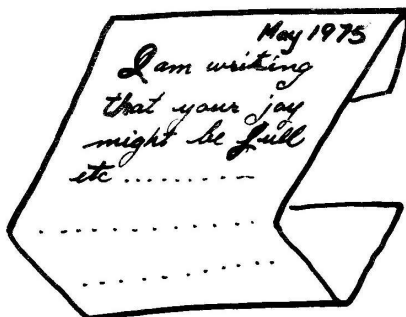 May 1975
I am writing
that your joy
might be full
etc ..........
. . . . . . . . . . . .
. . . . . . . . . .